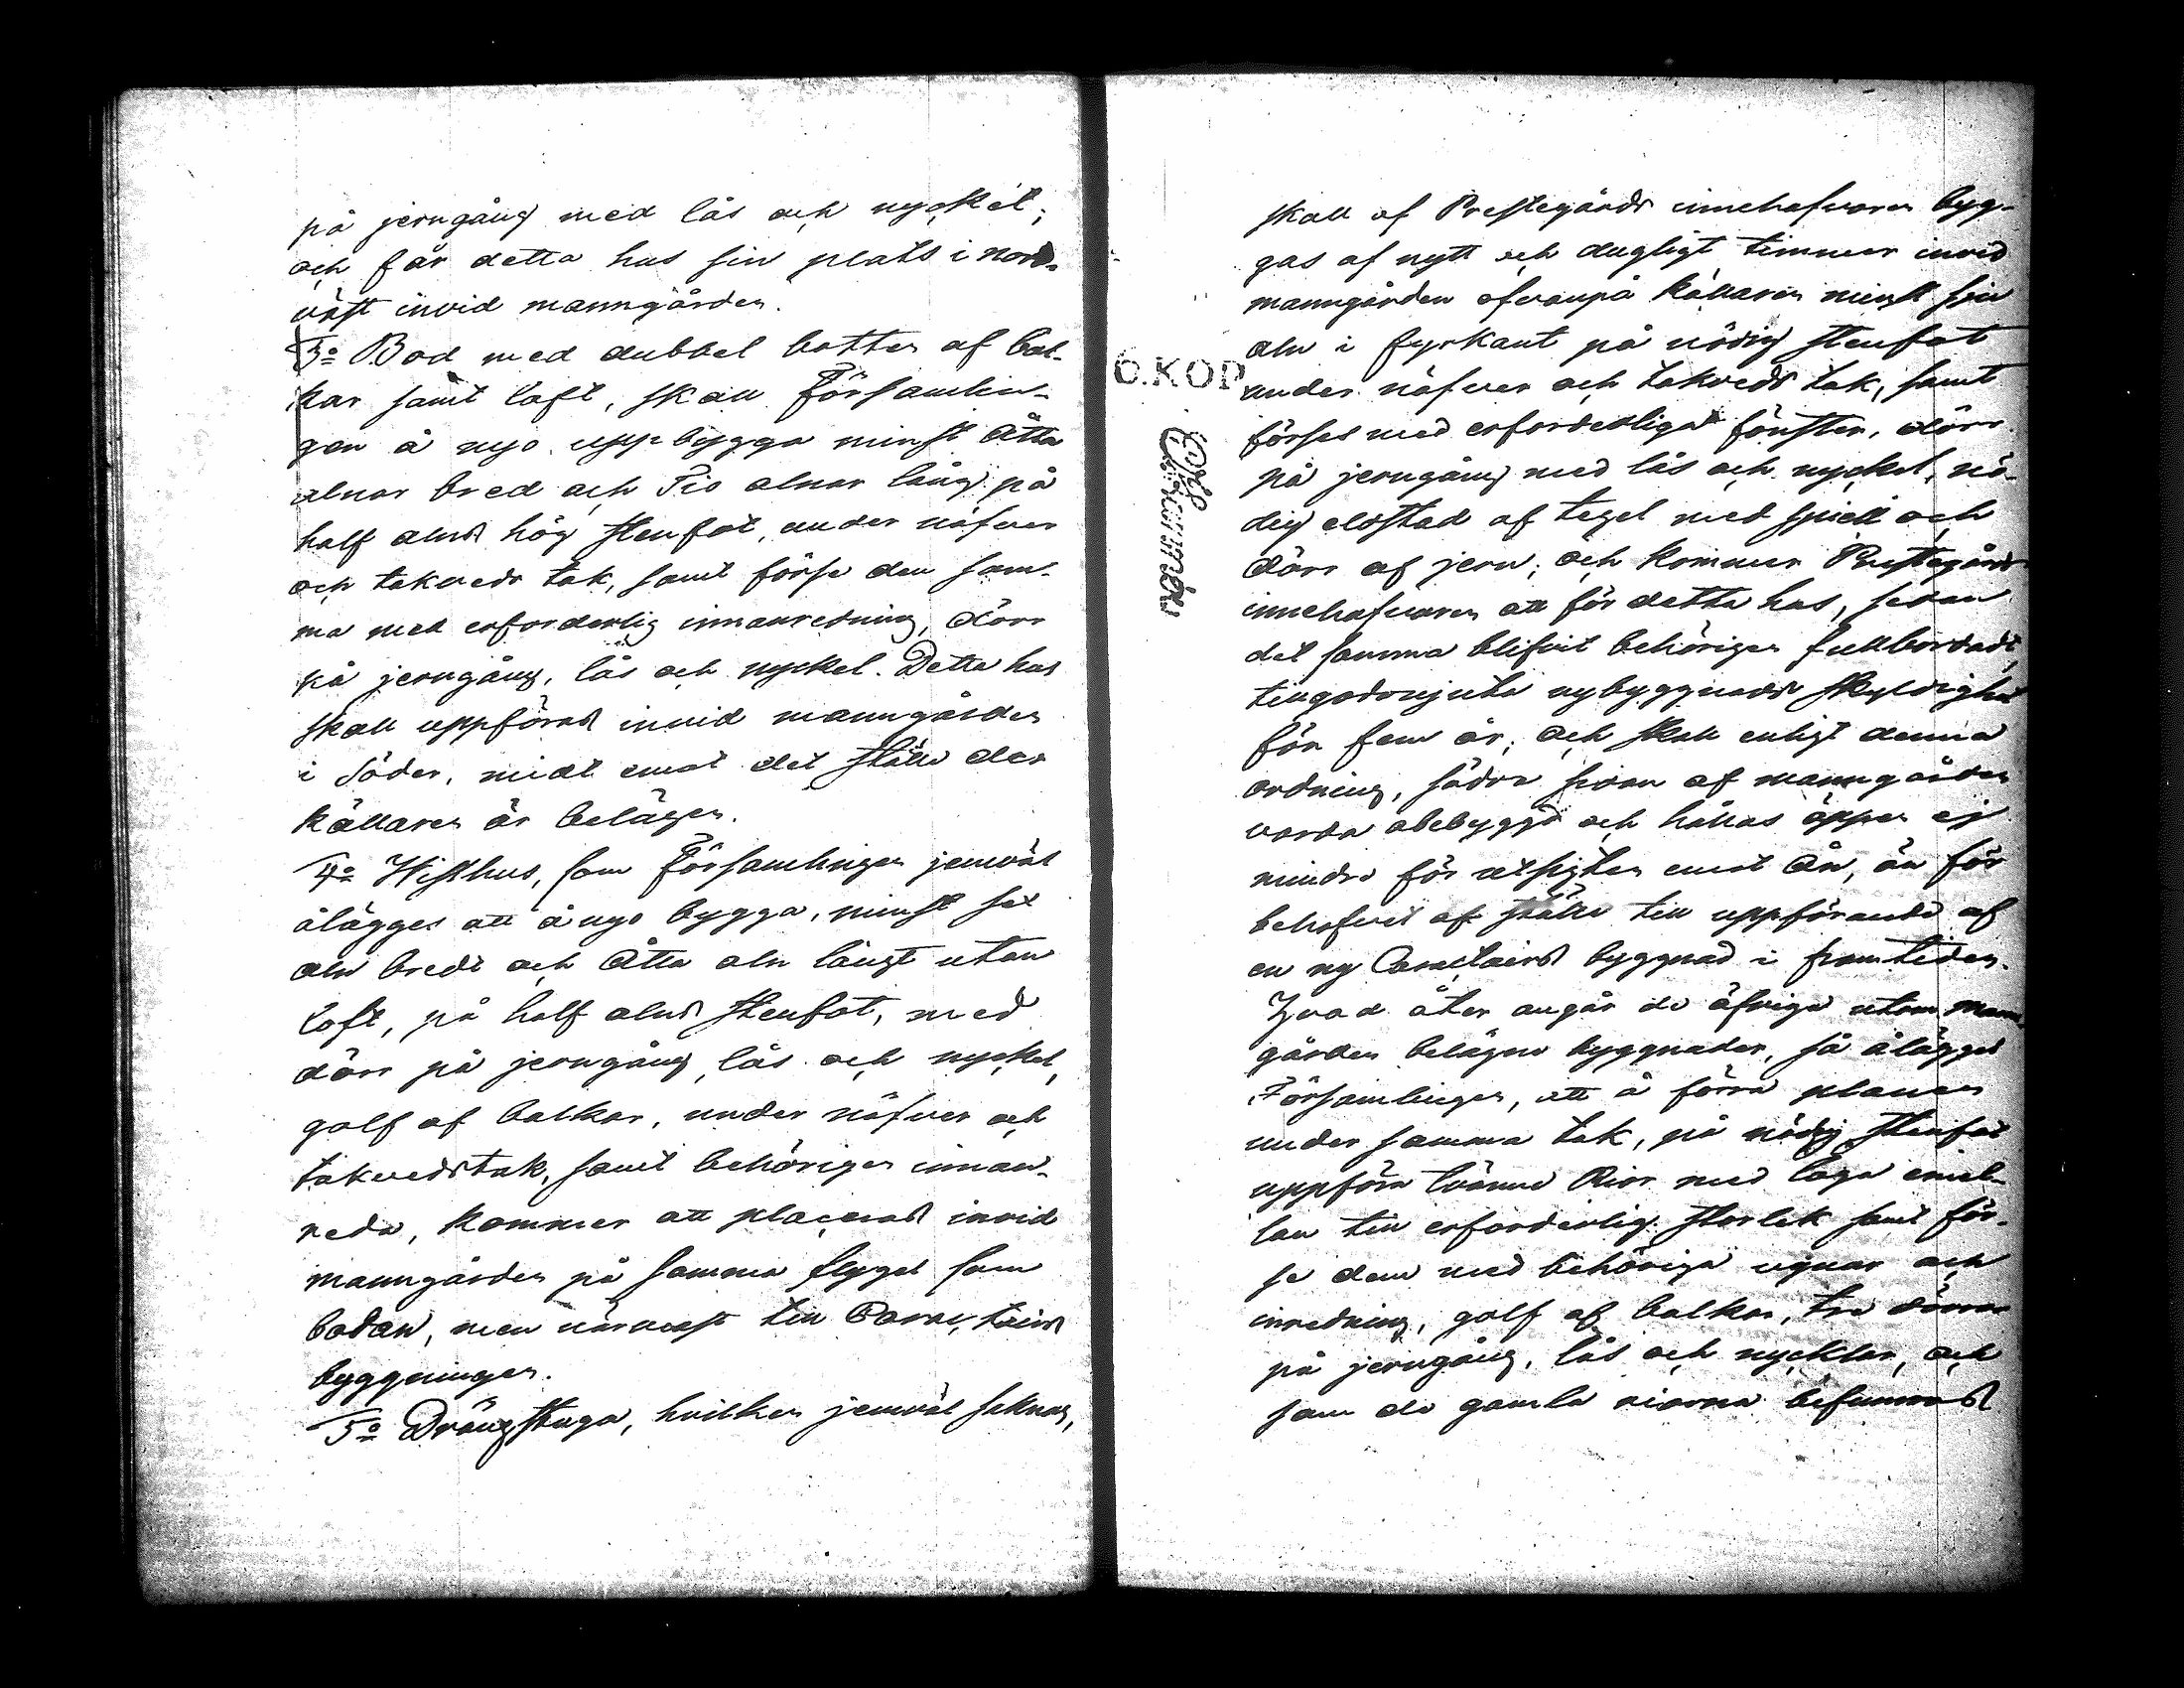 på jerngång med lås och nyckel;
och får detta hus sin plats i nord-
väst invid manngården.
3o Bod med dubbel botten af bal-
kar samt loft, skall Församlin-
gen å nyo uppbygga minst Åtta
alnar bred och Tio alnar lång på
half alns hög stenfot, under näfver
och takveds tak, samt förse den sam-
ma med erforderlig innanredning, dörr
på jerngång, lås och nyckel. Detta hus
skall uppföras invid manngården
i Söder, midt emot det ställe der
källaren är belägen.
4o Wisthus, som Församlingen jemväl
ålägges att ånyo bygga, minst sex
aln bredt och Åtta aln långt utan
loft, på half alns stenfot, med
dörr på jerngång, lås och nyckel,
golf af balkar, under näfver och
takvedstak, samt behörigen innan-
reda, kommer att placeras invid
manngården på samma flygel som
bodan, men närmast till
byggningen.
5o Drängstuga, hvilken jemväl saknas,
skall af Prestegårds innehafvaren byg-
gas af nytt och dugligt timmer invid
manngården ofvanpå källaren minst sju
aln i fyrkant på nödig stenfot
under näfver och takveds tak, samt
förses med erforderliga fönster, dörr
på jerngång med lås och nyckel, nö-
dig eldstad af tegel med spiell och
dörr af jern; och kommer Prestegårds
innehafvaren att för detta hus, sedan
det samma blifvit behörigen fullbordadt,
tillgodonjuta nybyggnads skyldighet
för fem år; och skall enligt denna
ordning, södra sidan af manngården
varda obebyggd och hållas öppen ej
mindre för utsigten emot ån, än för
behofvet af ställe till uppförande af
en ny byggnad i framtiden.
Hvad åter angår de öfriga utom mann-
gården belägne byggnader, så ålägges
Församlingen, att å förra planen
under samma tak, på nödig stenfot
uppföra tvänne Rior med loga emel-
lan till erforderlig storlek samt för-
se dem med behöriga ugnar och
inredning, golf af balkar, tre dörrar
på jerngång, lås och nycklar, och
som de gamla riorna befunnos
6.KOP